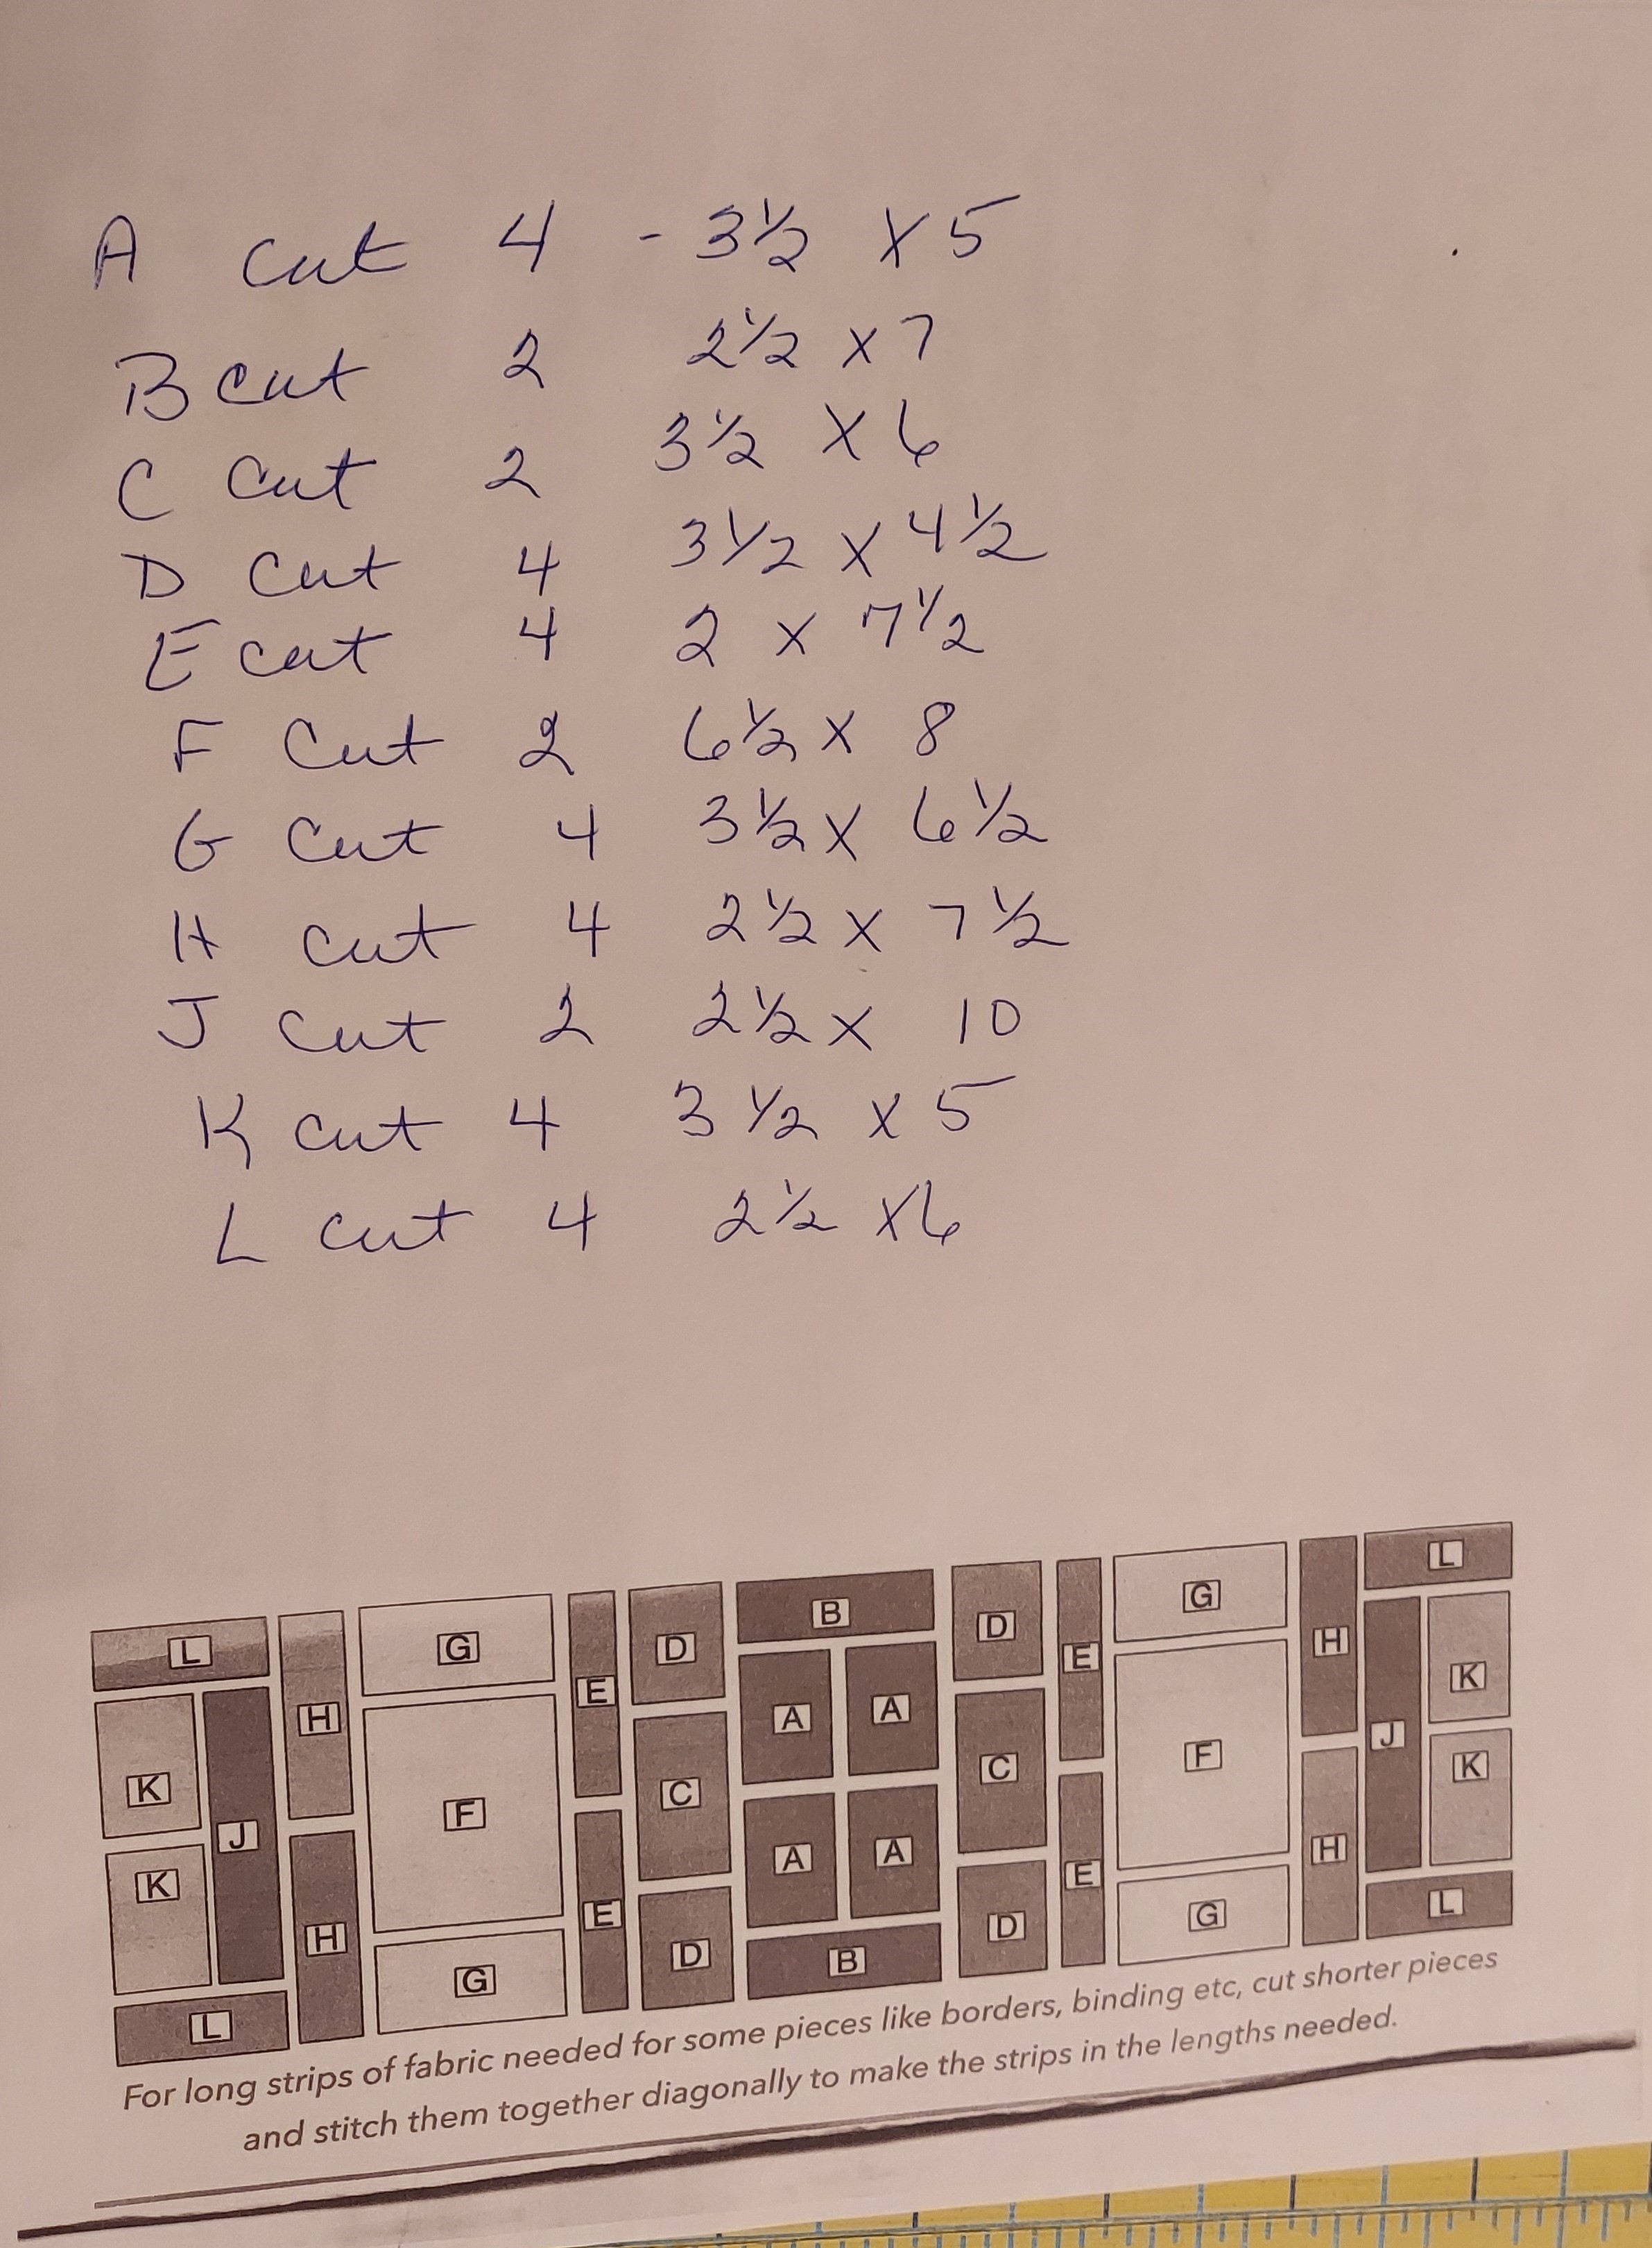 A cut 4 - 3 1/2 x 5
B cut 2 2 1/2 x 7
C cut 2 3 1/2 x 6
D cut 4 3 1/2 x 4 1/2
E cut 4 2 x 7 1/2
F cut 2 6 1/2 x 8
G cut 4 3 1/2 x 6 1/2
H cut 4 2 1/2 x 7 1/2
J cut 2 2 1/2 x 10
K cut 4 3 1/2 x 5
L cut 4 2 1/2 x 6
L H G E D B D E G H L
K J F C A A C F J K
K H E A A E H K
L G D B D G L
For long strips of fabric needed for some pieces like borders, binding etc, cut shorter pieces
and stitch them together diagonally to make the strips in the lengths needed.